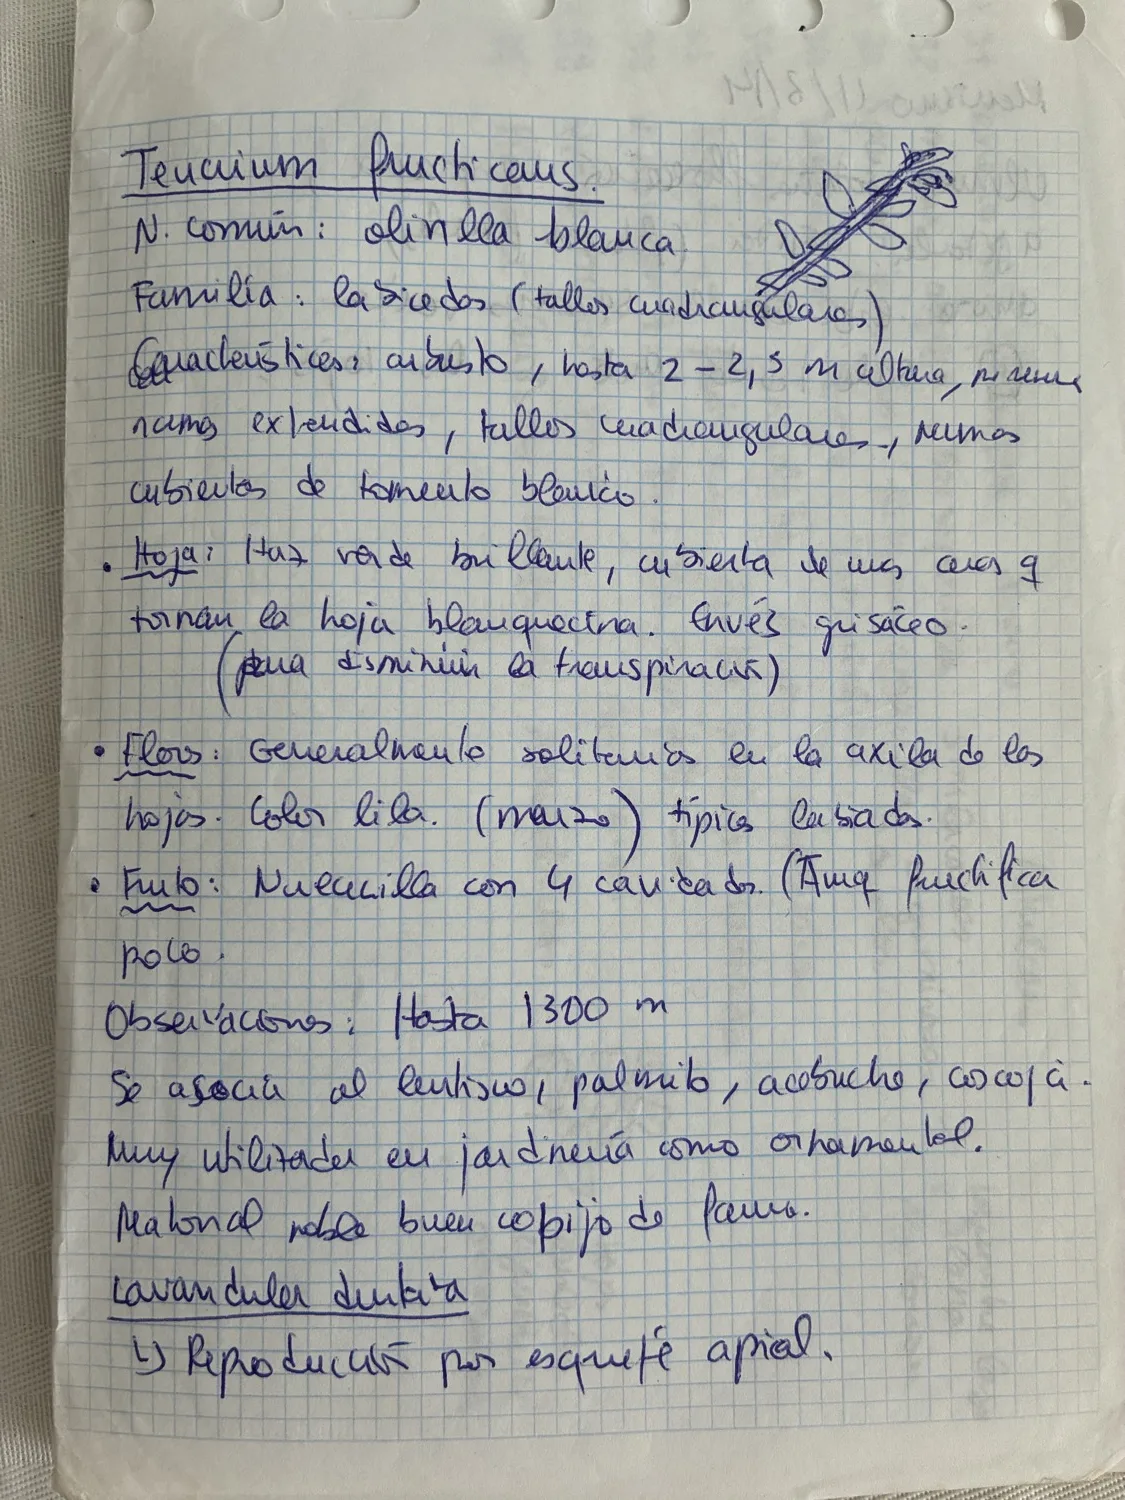 Teucrium fructicans.
N. común: olivilla blanca
Familia: labiadas (tallos cuadrangulares)
Características: arbusto, hasta 2-2,5 m altura, perenne
ramas extendidas, tallos cuadrangulares, ramas
cubiertas de tomento blanco.
• Hoja: Haz verde brillante, cubierta de unas ceras q
tornan la hoja blanquecina. Envés grisáceo.
(para disminuir la transpiración)
• Flores: Generalmente solitarias en la axila de las
hojas. Color lila. (marzo) típica labiadas.
• Fruto: Nuececilla con 4 cavidades. (Aunq fructifica
poco.
Observaciones: Hasta 1300 m
Se asocia al lentisco, palmito, acebuche, coscoja.
Muy utilizada en jardinería como ornamental.
Matorral noble buen cobijo de fauna.
Lavandula dentata
↳ Reproducción por esqueje apical.